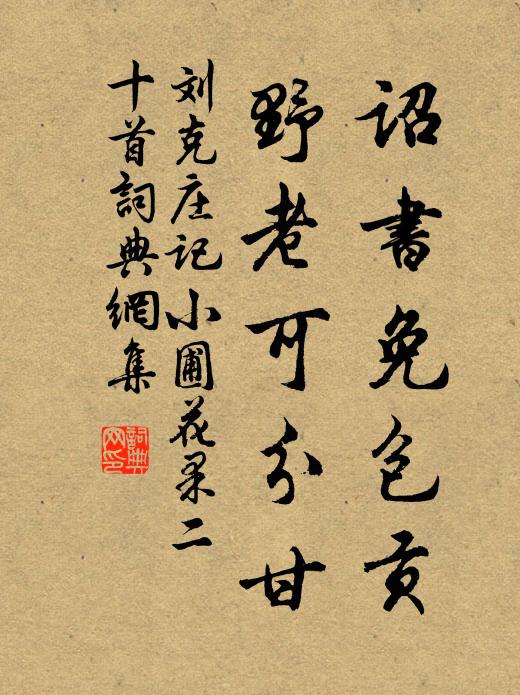 詔書免包貢
野老可分甘
刘克庄記小圃花果二
十首詞典網集
詞典网印